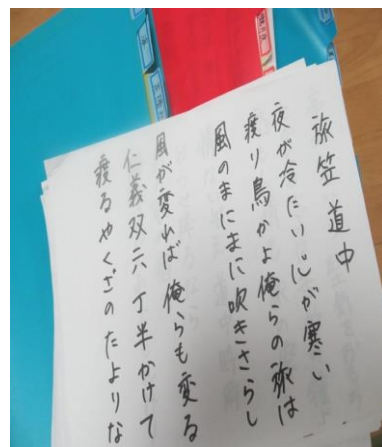 旅笠道中
夜が冷たい心が寒い
渡り鳥かよ俺らの旅は
風のまにまに吹きさらし
風が変れば俺らも変る
仁義双六丁半かけて
渡るやくざのたよりな